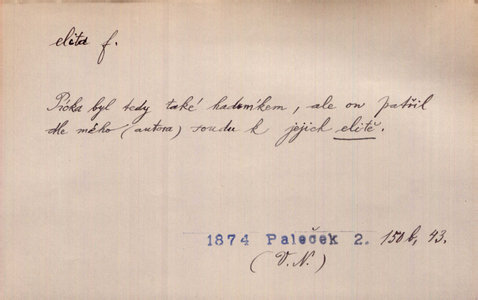 elita f.
byl tedy také hadrníkem, ale on patřil
dle mého (autora) soudu k jejich elitě.
1874 Paleček 2. 150b, 43.
(V. N.)